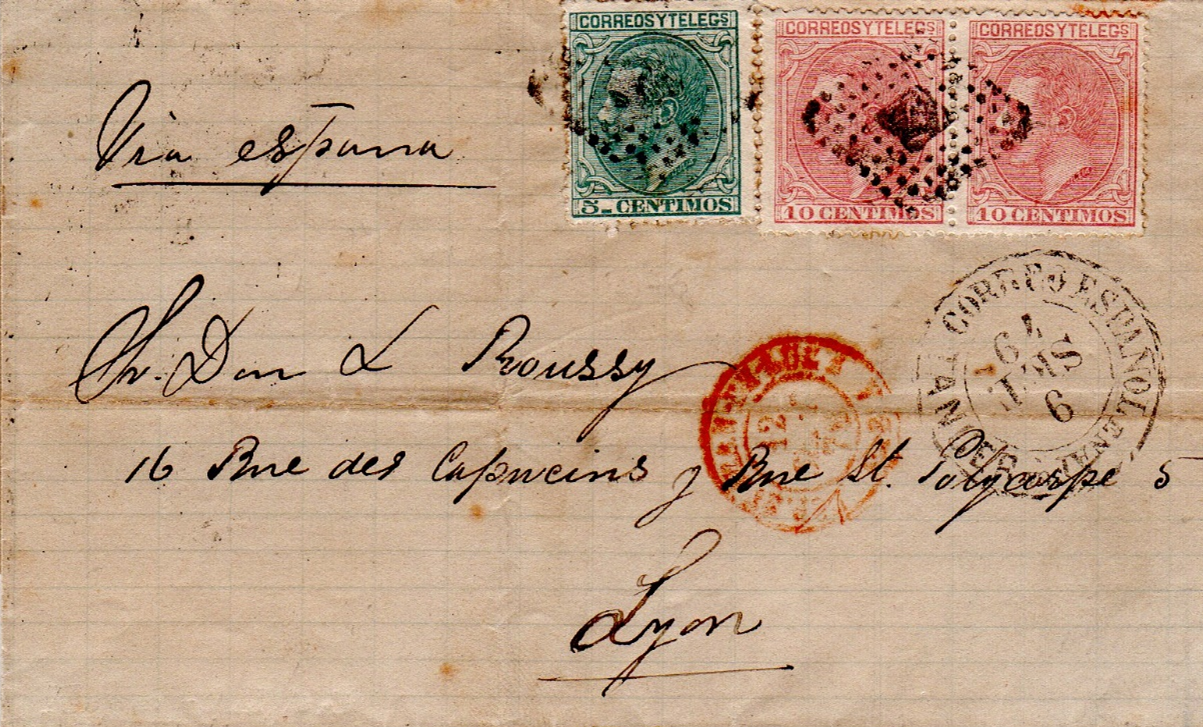 CORREOS Y TELEGS CORREOS Y TELEGS CORREOS Y TELEGS
5 CENTIMOS 10 CENTIMOS 10 CENTIMOS
Via españa
CORREO ESPAÑOL
79
6
Sr. Don L Roussy
12
16 Rue des Capucins y Rue St. Polycarpe 5
Lyon